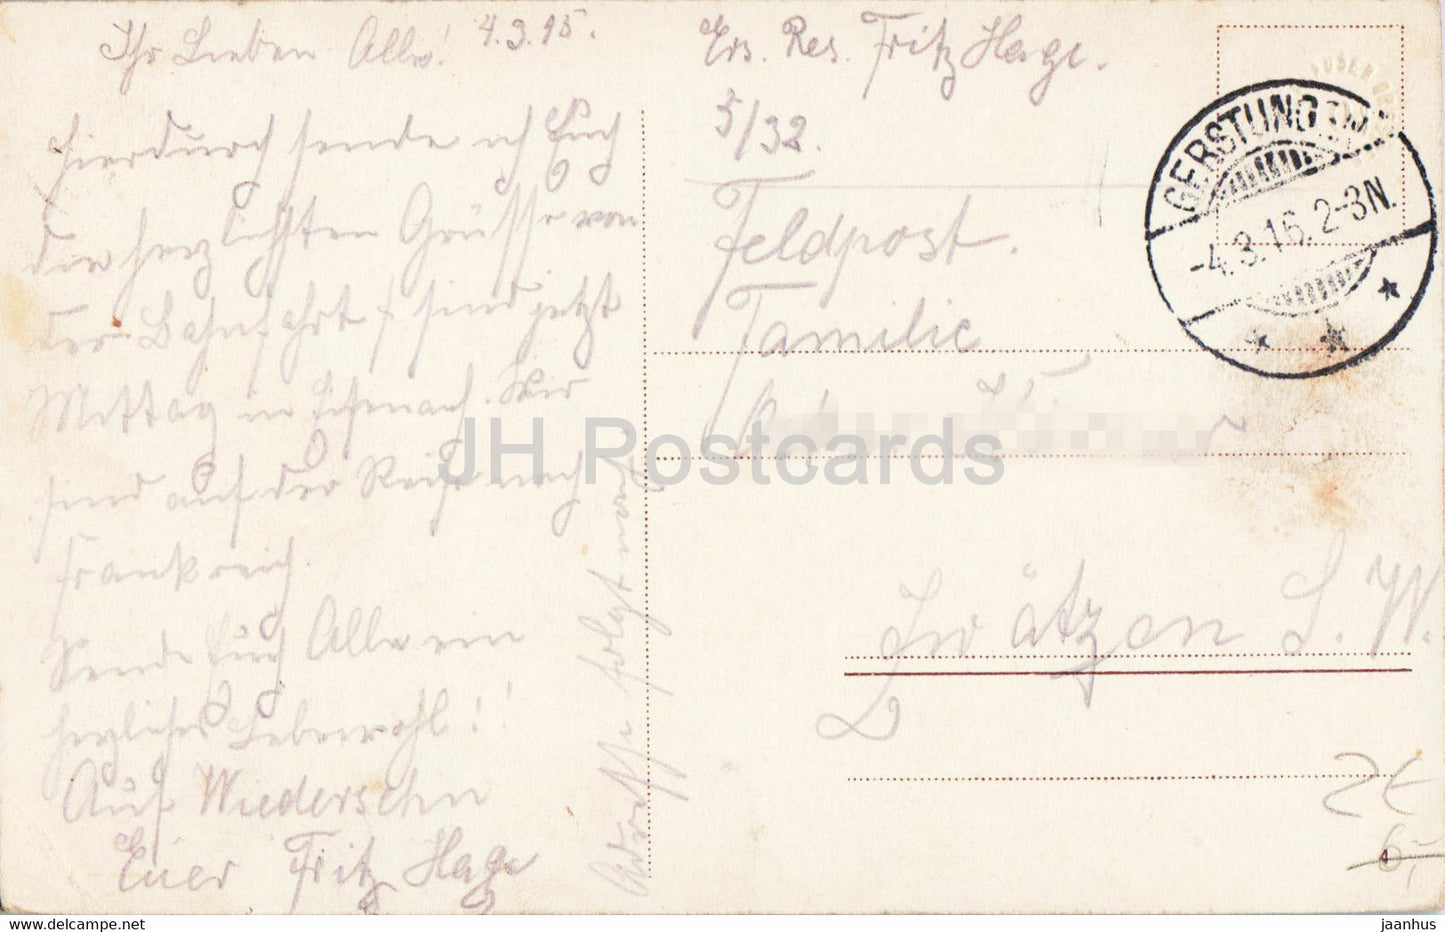 Ihr Lieben Alle! 4.3.15.
hierdurch sende ich Euch
die herzlichsten Grüsse von
der Bahnfahrt sind jetzt
Mittag in Eisenach. Wir
sind auf der Reise nach
Frankreich.
Sende Euch Allen ein
herzliches Lebewohl!!
Auf Wiedersehn
Euer Fritz Hage
Adresse folgt nach
Ers. Res. Fritz Hage.
5/32.
Feldpost.
Familie
Zwätzen S. W.
GERSTUNGEN
-4.3.16. 2-3N.
JH Postcards
2€
6,-
4
www.oldcard.com
jaanhus